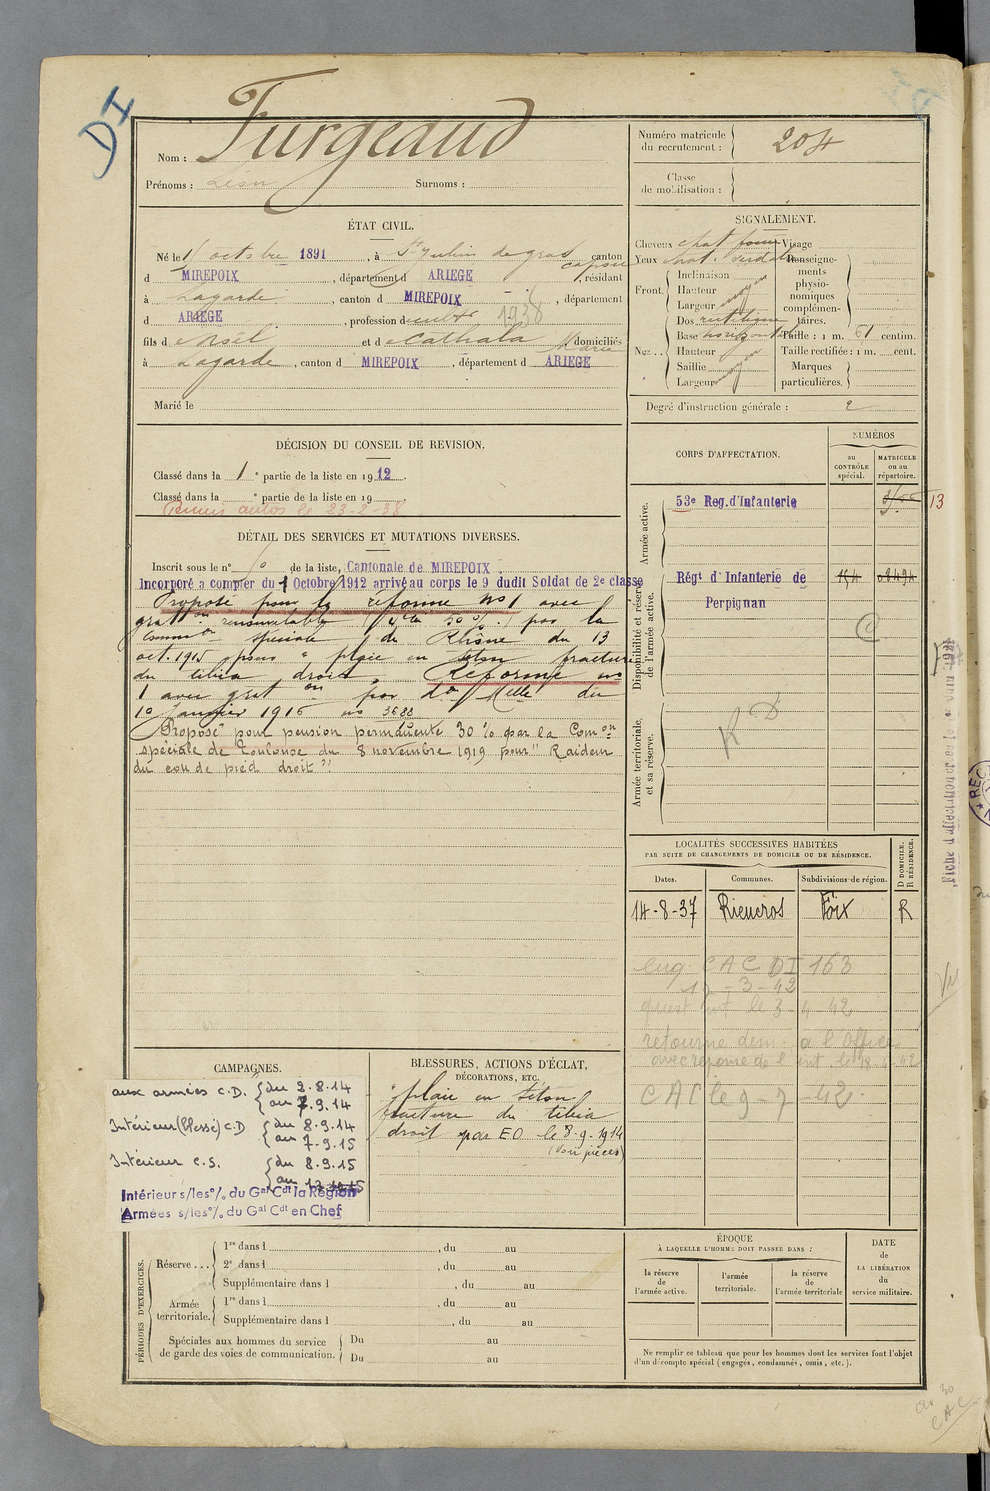 DI
Nom : Furgeaud
Prénoms : Léon Surnoms :
Numéro matricule du recrutement : 204
Classe de mobilisation :
ÉTAT CIVIL.
Né le 1 octobre 1891, à St Julien de gras capou canton
d MIREPOIX, département d ARIEGE, résidant
à Lagarde, canton d MIREPOIX, département
d ARIEGE, profession de 1938
fils d et d Cathala Marie domiciliés
à Lagarde, canton d MIREPOIX, département d ARIEGE
Marié le
SIGNALEMENT.
Cheveux chat Visage
Yeux chat. Renseigne-
Front. Inclinaison ments
Hauteur moyen physio-
Largeur nomiques
Dos rectiligne complémen-
taires.
Nez... Base horizontale Taille : 1 m. 61 centim.
Hauteur moyen Taille rectifiée : 1 m. cent.
Saillie Marques
Largeur particulières.
Degré d'instruction générale : 2
DÉCISION DU CONSEIL DE REVISION.
Classé dans la 1e partie de la liste en 1912.
Classé dans la e partie de la liste en 19 .
autos le 23-2-38
DÉTAIL DES SERVICES ET MUTATIONS DIVERSES.
Inscrit sous le n° de la liste, Cantonale de MIREPOIX.
Incorporé a compter du 1 Octobre 1912 arrivé au corps le 9 dudit Soldat de 2e classe
Proposé pour la réforme no 1 avec
grat on renouvelable 30 %. par la
Common spéciale du Rhône du 13
oct. 1915 pour " plaie en séton fracture
du tibia droit. Réforme no
1 avec grat on par don Mlle du
10 janvier 1916 no 3688
Proposé pour pension permanente 30 % par la Comon
spéciale de Toulouse du 8 novembre 1919 pour " Raideur
du cou de pied droit ".
CORPS D'AFFECTATION.
NUMÉROS
au CONTRÔLE spécial.
MATRICULE ou au répertoire.
Armée active.
53e Reg. d'Infanterie 13
Disponibilité et réserve de l'armée active.
Régt d'Infanterie de 154 08494
Perpignan
C
Armée territoriale, et sa réserve.
R D
LOCALITÉS SUCCESSIVES HABITÉES
PAR SUITE DE CHANGEMENTS DE DOMICILE OU DE RÉSIDENCE.
Dates. Communes. Subdivisions de région. D DOMICILE. R RÉSIDENCE.
14-8-37 Rieucros Foix R
CAC DI 163
17-3-42
le 3-4-42
retourne dem. a l'Office
CAC le 9-7-42
CAMPAGNES.
aux armées C.D. { du 2.8.14
au 7.9.14
Intérieur (blessé) C.D { du 8.9.14
au 7.9.15
Intérieur C.S. { du 8.9.15
au
Intérieur s/les o/. du Gal Cdt la Région
Armées s/les o/. du Gal Cdt en Chef
BLESSURES, ACTIONS D'ÉCLAT,
DÉCORATIONS, ETC.
" plaie en séton
fracture du tibia
droit par EO le 8.9.1914
(Voir pièces)
PÉRIODES D'EXERCICES.
Réserve ... 1re dans l , du au
2e dans l , du au
Supplémentaire dans l , du au
Armée territoriale. 1re dans l , du au
Supplémentaire dans l , du au
Spéciales aux hommes du service Du au
de garde des voies de communication. Du au
ÉPOQUE
À LAQUELLE L'HOMME DOIT PASSER DANS :
la réserve de l'armée active.
l'armée territoriale.
la réserve de l'armée territoriale
DATE de LA LIBÉRATION du service militaire.
Ne remplir ce tableau que pour les hommes dont les services font l'objet
d'un décompte spécial (engagés, condamnés, omis, etc.).
CAC